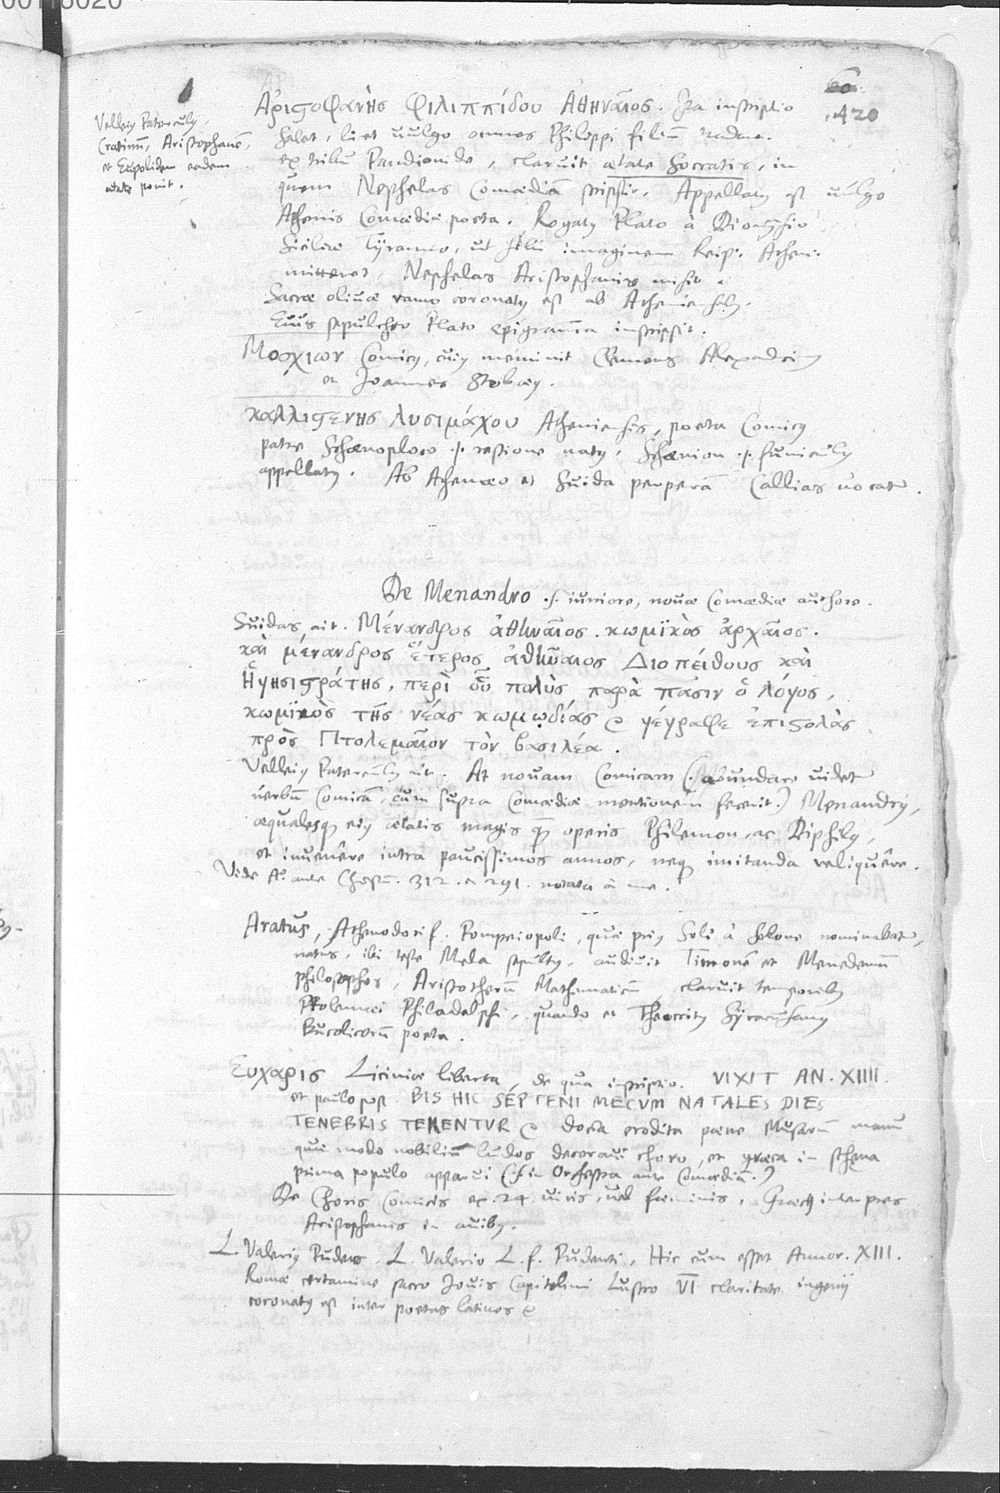 00118020
60.
420
Velleiꝰ Paterculꝰ,
Cratinū, Aristophanē,
et Eupolidem eadem
aetate ponit.
Ἀριϛοφανης Φιλιππίδου Αθηναῖος. Ita inscriptio
habet, licet uulgo omnes Philippi filiū
ex tribu Pandionide, claruit aetate Socratis, in
quem Nephelas Comoediā scripsit. Appellatꝰ est uulgo
Athenis Comoediae poeta. Rogatꝰ Plato à Dionysio
Siciliae Tyranno, ut sibi imaginem Reip. Atheni.
mitteret, Nephelas Aristophanis misit.
Sacrae oliuae ramo coronatꝰ est ab Atheniensibꝰ.
Eius sepulchro Plato epigramma inscripsit.
Μοσχίων Comicꝰ, cuiꝰ meminit Clemens Alexandrinꝰ
et Joannes Stobaeꝰ.
καλλιϛενης Λυσιμάχου Atheniensis, poeta Comicꝰ
patre Schoenoploco .i. restione natꝰ, Schoenion .i. funiculꝰ
appellatꝰ. Ab Athenaeo et Suida perperā Callias uocatr.
De Menandro .s. iuniore, nouae Comoediae authore.
Suidas ait. Μένανδρος ἀθηναῖος. κωμϊκὸς ἀρχαῖος.
καὶ μένανδρος ἕτερος ἀθηναῖος Διοπείθους καὶ
Ἡγησιϛράτης, περὶ οὗ πολὺς παρὰ πᾶσιν ὁ λόγος,
κωμϊκὸς τῆς νέας κωμῳδίας & γέγραφε ἐπιϛολὰς
πρὸς Πτολεμαῖον τὸν βασιλέα.
Velleiꝰ Paterculꝰ ait. At nouam Comicam (abundare uidetr
uerbū Comicā, cum supra Comoediae mentionem fecerit.) Menandrꝰ,
aequalesqꝫ eiꝰ aetatis magis qꝫ operis Philemon, ac Diphilꝰ,
et inuenêre intra paucissimos annos, neqꝫ imitanda reliquêre.
Vide Aº. ante Christū. 312. et 291. notata à me.
Aratus, Athenodori f. Pompeiopoli, quae priꝰ Soli à Solone nominabatr,
natus, ibi teste Mela sepultꝰ, audiuit Timonē et Menedemū
philosophos, Aristotherū Mathematicū, claruit temporibꝰ
Ptolemaei Philadelphi, quando et Theocritꝰ Syracusanꝰ
Bucolicorū poeta.
Ευχαρις Liciniae liberta, de qua inscriptio. VIXIT AN. XIIII.
et paulo post. BIS HIC SEPTENI MECVM NATALES DIES
TENEBRIS TENENTVR & docta erodita paene Musarū manu
quae modo nobiliū ludos decoraui choro, et graeca in schena
prima populo apparui (.i. in Orchestra ante Comoediā.)
De Choris Comicis ex. 24. uiris, uel foeminis, Graecꝰ interpres
Aristophanis in auibꝰ.
L. Valeriꝰ Pudens. L. Valerio L. f. Pudenti, Hic cum esset Annor. XIII.
Romae certamine sacro Jouis Capitolini Lustro VI claritate ingenij
coronatꝰ est inter poetas latinos &